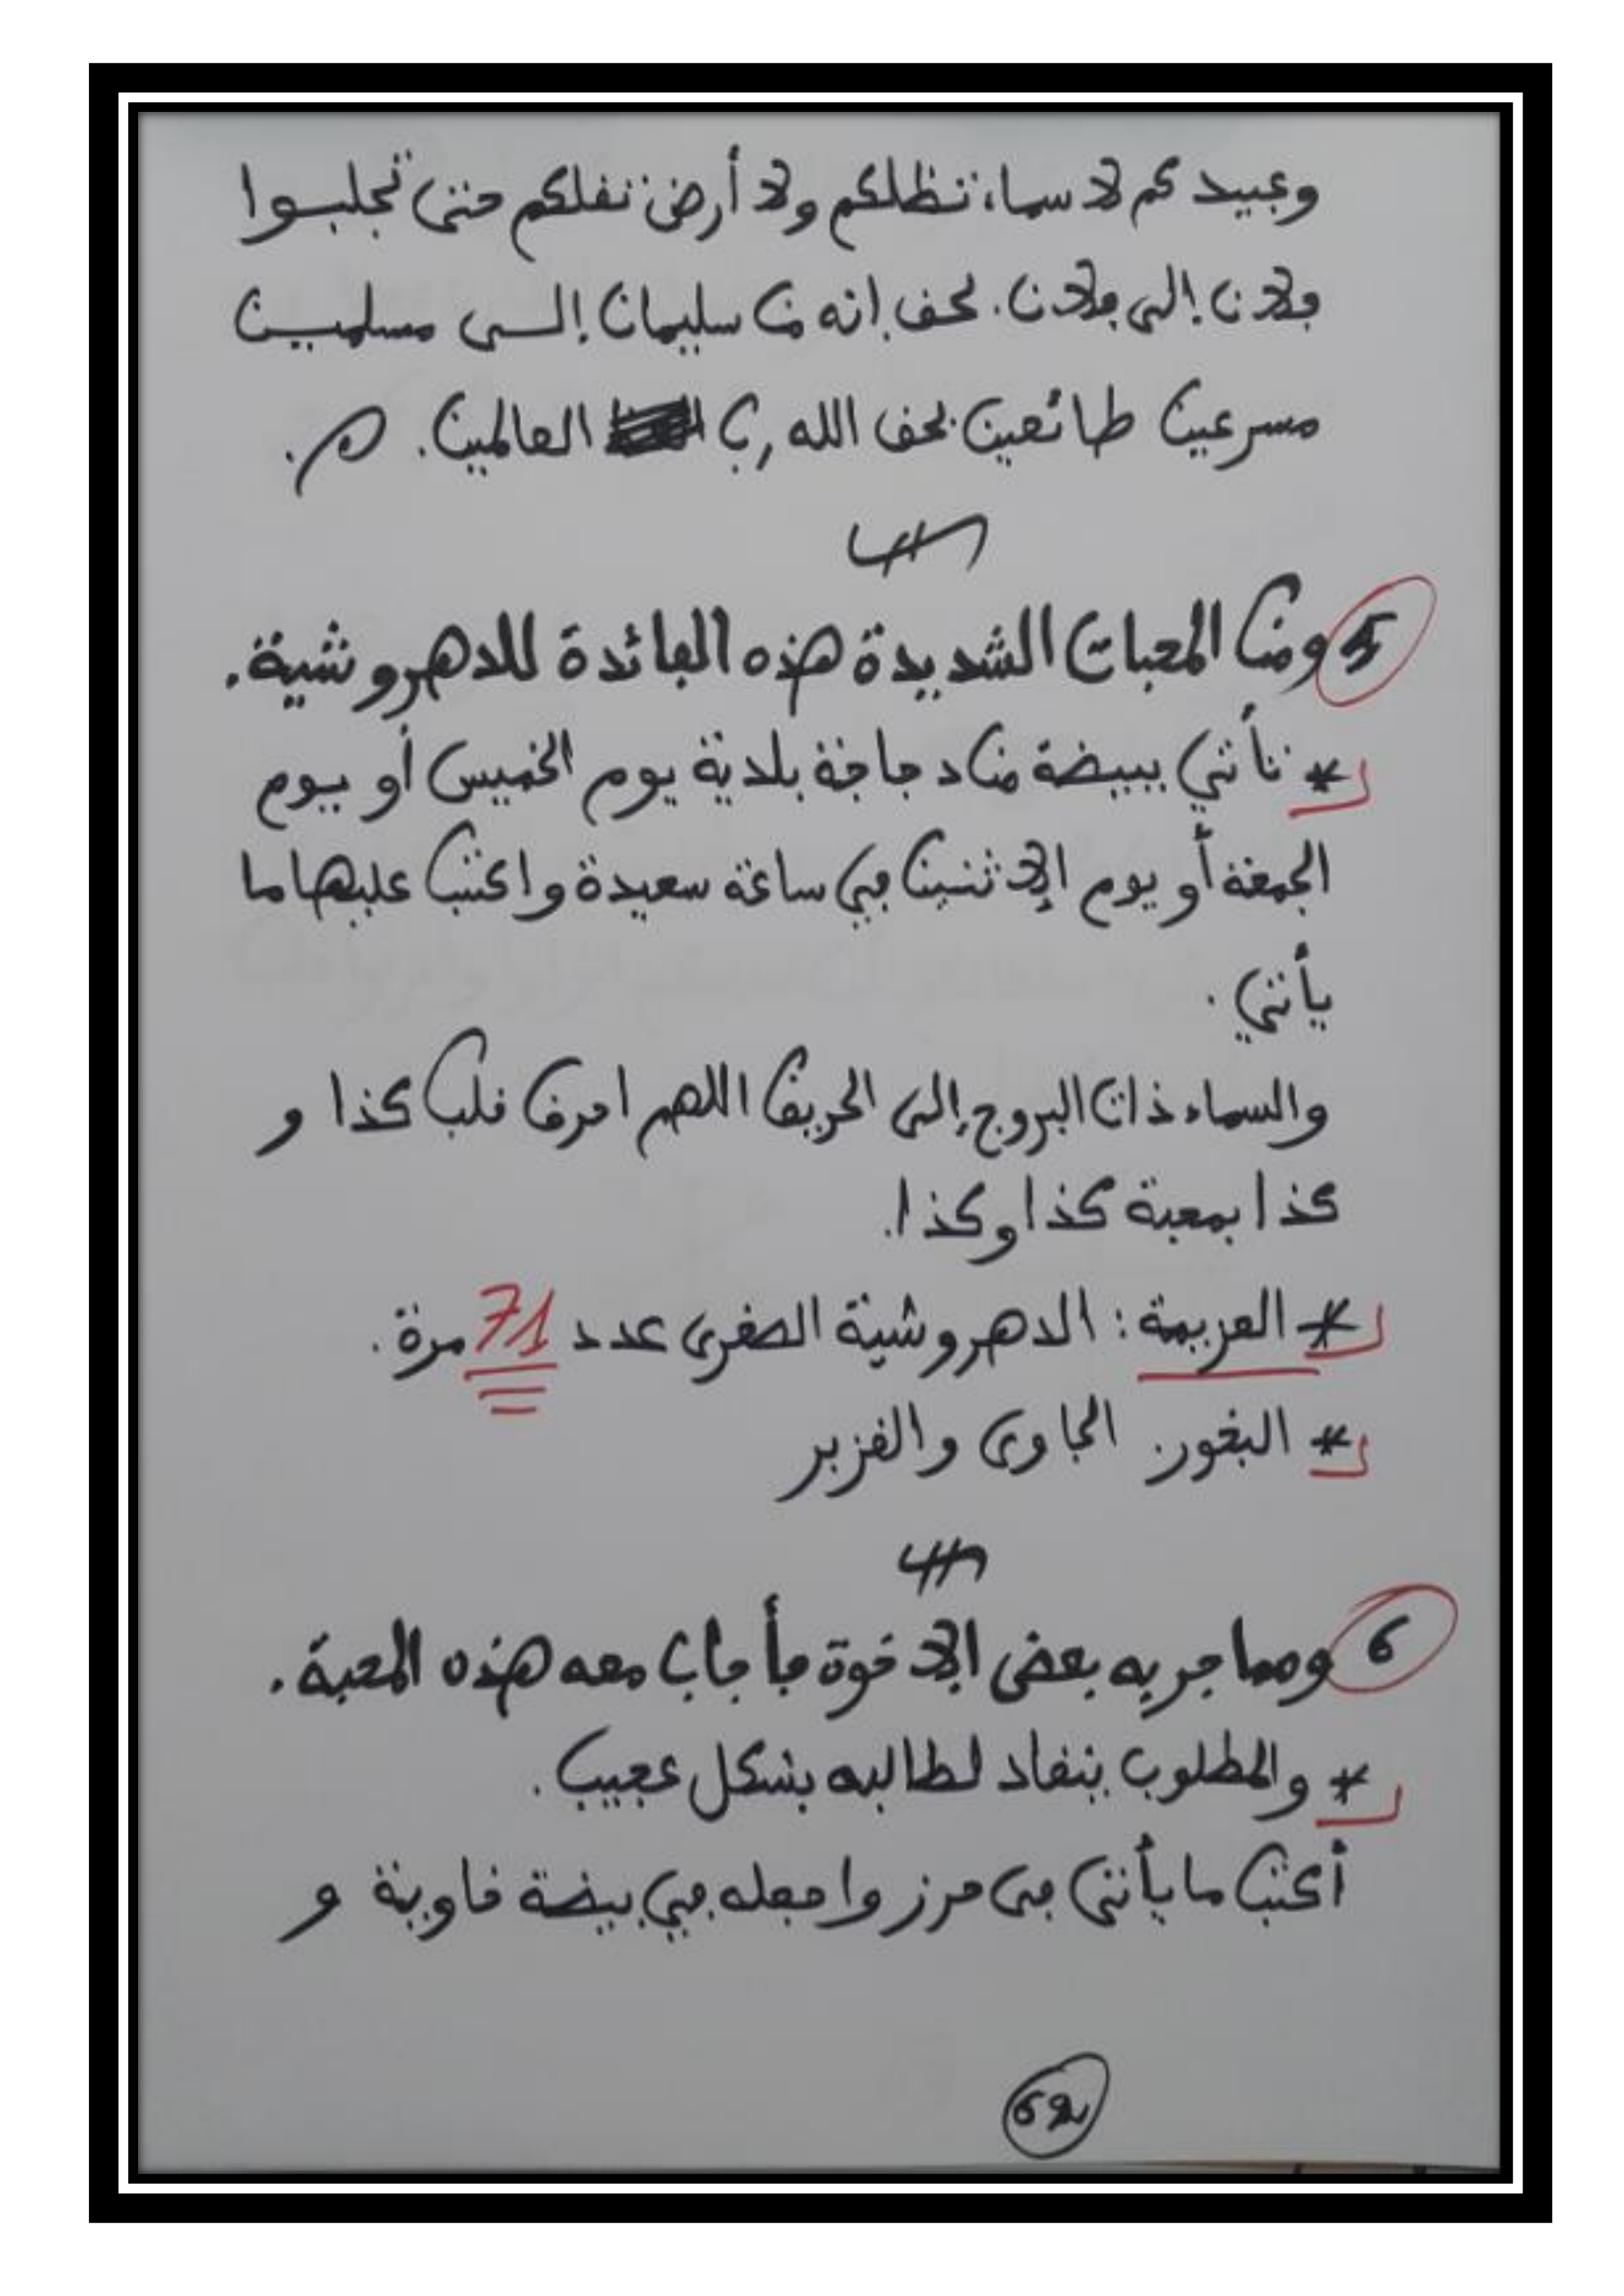 وعبيدكم لا سماء تظلكم ولا أرض تقلكم حتى تجلبوا
فلان إلى فلان. بحق إنه من سليمان إلى مسلمين
مسرعين طائعين بحق الله رب العالمين.
5 ومن المحبات الشديدة هذه الفائدة للدهروشية.
* تأتي ببيضة من دجاجة بلدية يوم الخميس أو يوم
الجمعة أو يوم الإثنين في ساعة سعيدة واكتب عليها ما
يأتي.
والسماء ذات البروج إلى الحريق اللهم احرق قلب كذا و
كذا بمحبة كذا وكذا.
* العزيمة: الدهروشية الصغرى عدد 71 مرة.
* البخور. الجاوى والقزبر
6 ومما جربه بعض الإخوة فأجاب معه هذه المحبة.
* والمطلوب ينقاد لطالبه بشكل عجيب.
أكتب ما يأتي في حرز واجعله في بيضة خاوية و
62